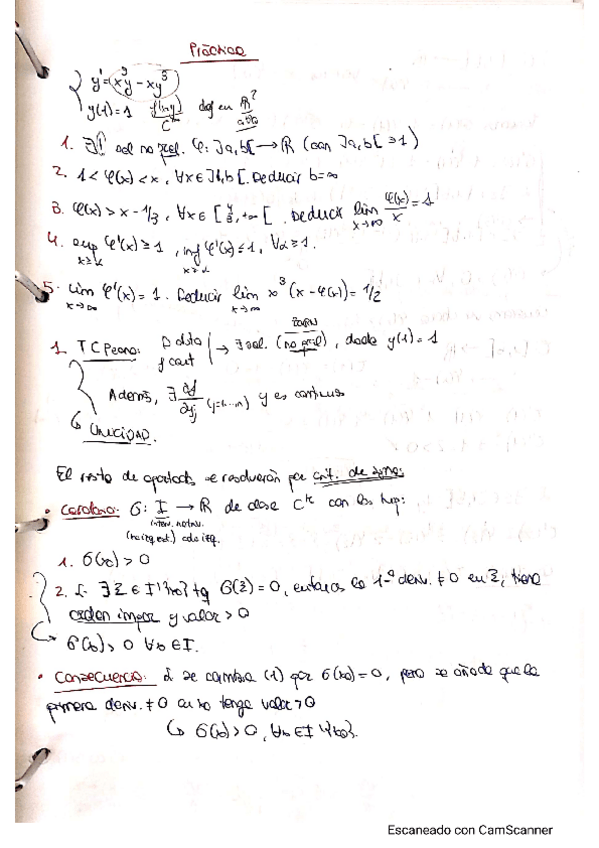 Práctica
y' = x³y - xy³
y(1) = 1 f(x,y) C^∞ def en ℝ² abto
1. ∃! sol no prol. φ: ]a,b[ → ℝ (con ]a,b[ ∋ 1)
2. 1 < φ(x) < x, ∀x ∈ ]1,b[. Deducir b = ∞
3. φ(x) > x - 1/3, ∀x ∈ [ , +∞[. Deducir lim x→∞ φ(x)/x = 1
4. sup x≥α φ'(x) ≥ 1, inf x≥α φ'(x) ≤ 1, ∀α ≥ 1.
5. lim x→∞ φ'(x) = 1. Deducir lim x→∞ x³(x - φ(x)) = 1/2
1. TC Peano: D abto f cont → ∃ sol. (no prol) ZORN, dada y(1) = 1
Además, ∃ ∂f/∂yj (j=1...n) y es continua
UNICIDAD.
El resto de apartados se resolverán por crit. de zonas:
• Corolario: σ: I → ℝ de clase C^k con las hip:
interv. notriv.
1. σ(x0) > 0
2. Si ∃ ξ ∈ I\{x0} tq σ(ξ) = 0, entonces la 1ª deriv. ≠ 0 en ξ, tiene
orden impar y valor > 0
↪ σ(x) > 0 ∀x ∈ I.
• Consecuencia: Si se cambia (1) por σ(x0) = 0, pero se añade que la
primera deriv. ≠ 0 en x0 tenga valor > 0
↪ σ(x) > 0, ∀x ∈ I\{x0}.
Escaneado con CamScanner